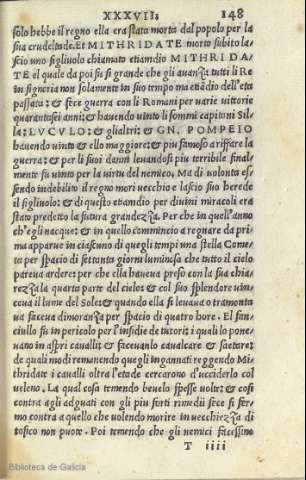 XXXVII. 148
solo hebbe il regno ella era stata morta dal popolo per la
sua crudeltade. Et MITHRIDATE morto subito la/
scio uno figliuolo chiamato etiamdio MITHRIDA/
TE el quale da poi su si grande che gli auanza tutti li Re
in signoria non solamente in suo tempo ma etiādio dell'eta
passata: & fece guerra con li Romani per uarie uittorie
quarantasei anni: & hauendo uinto li sommi capitani Sil/
la: LVCVLO: & gli altri: & GN. POMPEIO
hauendo uinto & ello maggiore: & piu famoso a rifare la
guerra: & per li suoi danni leuandosi piu terribile final/
mente fu uinto per la uirtu del nemico. Ma di uolonta es/
sendo indebilito il regno mori uecchio e lascio suo herede
il figliuolo: & di questo etiamdio per diuini miracoli era
stato predetto la futura grandezza. Per che in quell'anno
ch'egli nacque: & in quello commincio a regnare da pri/
ma apparue in ciascuno di quegli tempi una stella Come/
ta per spacio di settanta giorni luminosa che tutto il cielo
pareua ardere: per che ella haueua preso con la sua chia/
rezza la quarta parte del cielo: & col suo splendore uin/
ceua il lume del Sole: & quando ella si leuaua o tramonta
ua faceua dimoranza per spacio di quatro hore. El fan/
ciullo fu in pericolo per l'insidie de tutori: i quali lo pone/
uano in aspri caualli: & faceuanlo caualcare & saetare:
de quali modi remanendo quegli ingannati reggendo Mi/
thridate i caualli oltra l'etade cercarono d'ucciderlo col
ueleno. La qual cosa temendo beuelo spesse uolte: & cosi
contra agli aduati con gli piu forti rimedii sece si fer/
mo contra a quello che uolendo morire in uecchiezza di
tosico non puote. Poi temendo che gli nemici facessino
T iiii
Biblioteca de Galicia